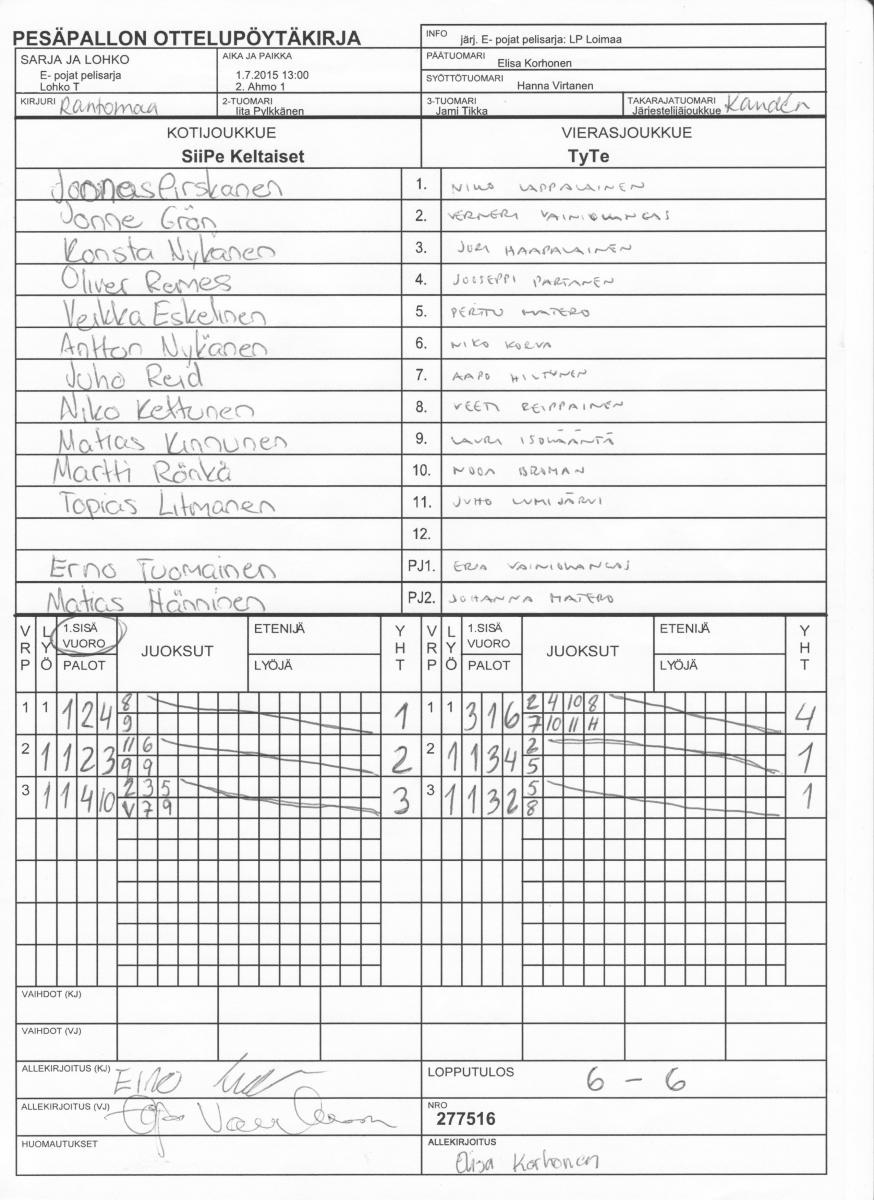 PESÄPALLON OTTELUPÖYTÄKIRJA
INFO järj. E- pojat pelisarja: LP Loimaa
SARJA JA LOHKO
E- pojat pelisarja
Lohko T
AIKA JA PAIKKA
1.7.2015 13:00
2. Ahmo 1
PÄÄTUOMARI Elisa Korhonen
SYÖTTÖTUOMARI Hanna Virtanen
KIRJURI Rantomaa
2-TUOMARI Iita Pylkkänen
3-TUOMARI Jami Tikka
TAKARAJATUOMARI Järjestelijäjoukkue Kandén
KOTIJOUKKUE VIERASJOUKKUE
SiiPe Keltaiset TyTe
Joonas Pirskanen 1. NIKO LAPPALAINEN
Jonne Grön 2. VERNERI VAINIOKANGAS
Konsta Nykänen 3. JURI HAAPALAINEN
Oliver Remes 4. JOOSEPPI PARTANEN
Veikka Eskelinen 5. PERTTU MATERO
Antton Nykänen 6. NIKO KORVA
Juho Reid 7. AAPO HILTUNEN
Niko Kettunen 8. VEETI REIPPAINEN
Matias Kinnunen 9. LAURI ISOMÄÄNTÄ
Martti Rönkä 10. NOOA BROMAN
Topias Litmanen 11. JUHO LUMIJÄRVI
12.
Erno Tuomainen PJ1. ERJA VAINIOKANGAS
Matias Hänninen PJ2. JOHANNA MATERO
VRP LYÖ 1.SISÄ VUORO PALOT JUOKSUT ETENIJÄ LYÖJÄ YHT VRP LYÖ 1.SISÄ VUORO PALOT JUOKSUT ETENIJÄ LYÖJÄ YHT
8 2 4 10 8
1 1 1 2 4 1 1 1 3 1 6 4
9 7 10 11 H
11 6 2
2 1 1 2 3 2 2 1 1 3 4 1
9 9 5
2 3 5 5
3 1 1 4 10 3 3 1 1 3 2 1
V 7 9 8
VAIHDOT (KJ)
VAIHDOT (VJ)
ALLEKIRJOITUS (KJ)
LOPPUTULOS 6 - 6
ALLEKIRJOITUS (VJ)
NRO
277516
HUOMAUTUKSET
ALLEKIRJOITUS
Elisa Korhonen